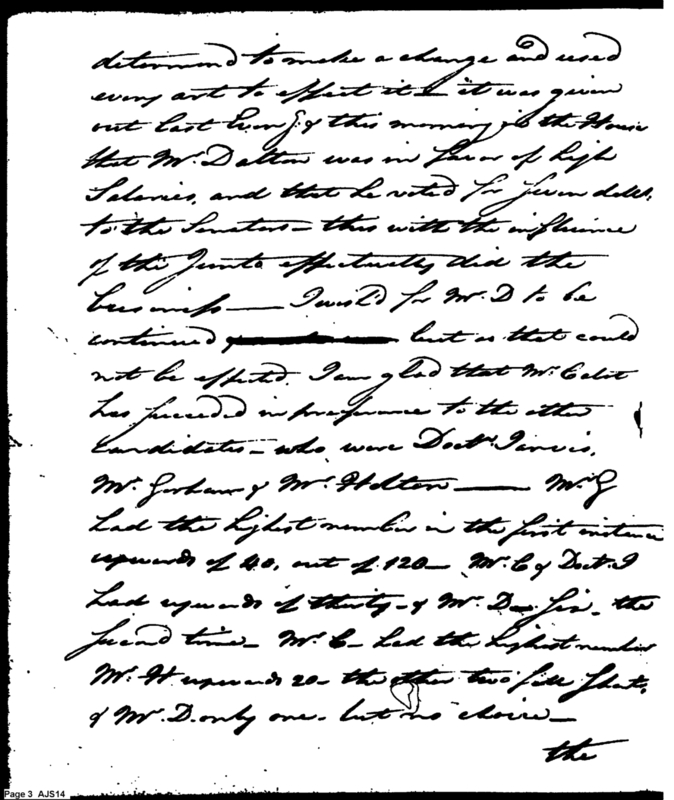 determined to make a change and used
every art to effect it — it was given
out last Eveng. & this morning in the House
that Mr. Dalton was in favor of high
Salaries, and that he voted for seven dolls.
to the Senators — this with the influence
of the Junto effectually did the
business — I wish'd for Mr. D to be
continued but as that could
not be effected, I am glad that Mr. Cabot
has succeeded in preference to the other
Candidates — who were Doctr. Jarvis,
Mr. Gorham & Mr. Holton — Mr. G
had the highest number in the first instance
upwards of 40, out of 120 — Mr. C & Doct. J
had upwards of thirty — & Mr. D — six — the
second time — Mr. C — had the highest number
Mr. H upwards 20 — the other two fell short,
& Mr. D — only one — but no choice —
the
Page 3 AJS14